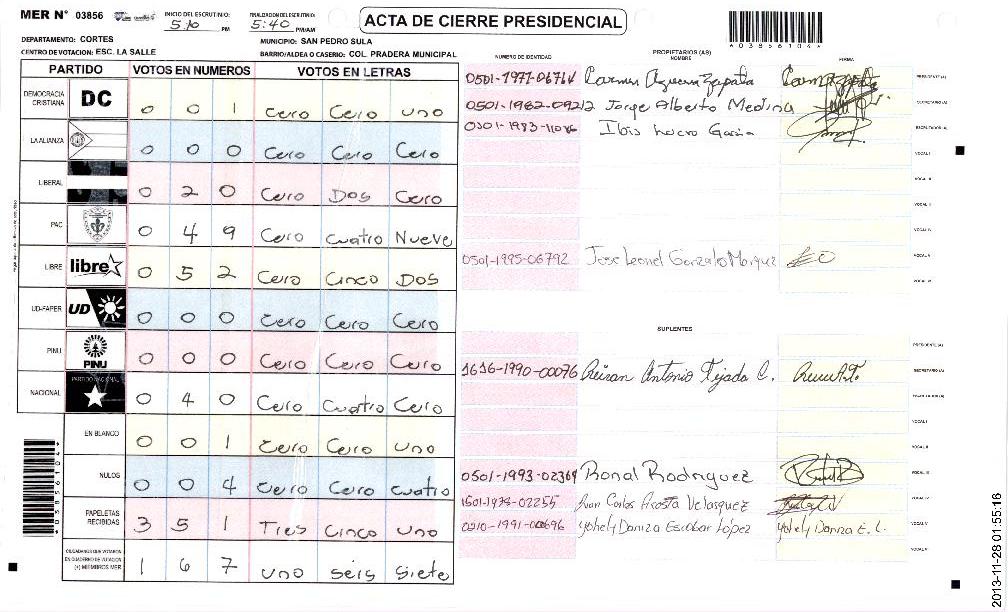 MER N° 03856
INICIO DEL ESCRUTINIO: 5:10 PM
FINALIZACION DEL ESCRUTINIO: 5:40 PM/AM
ACTA DE CIERRE PRESIDENCIAL
*0385610 4*
DEPARTAMENTO: CORTES
MUNICIPIO: SAN PEDRO SULA
CENTRO DE VOTACION: ESC. LA SALLE
BARRIO/ALDEA O CASERIO: COL. PRADERA MUNICIPAL
PARTIDO VOTOS EN NUMEROS VOTOS EN LETRAS
DEMOCRACIA CRISTIANA DC 0 0 1 Cero Cero uno
LA ALIANZA 0 0 0 Cero Cero Cero
LIBERAL 0 2 0 Cero Dos Cero
PAC 0 4 9 Cero cuatro Nueve
LIBRE libre 0 5 2 Cero Cinco Dos
UD-FAPER UD 0 0 0 Cero Cero Cero
PINU PINU 0 0 0 Cero Cero Cero
NACIONAL PARTIDO NACIONAL 0 4 0 Cero Cuatro Cero
EN BLANCO 0 0 1 Cero Cero uno
NULOS 0 0 4 Cero Cero cuatro
PAPELETAS RECIBIDAS 3 5 1 Tres Cinco uno
CIUDADANOS QUE VOTARON EN CUADERNO DE VOTACION (+) MIEMBROS MER 1 6 7 uno seis siete
NUMERO DE IDENTIDAD
PROPIETARIOS (AS)
NOMBRE
FIRMA
Carmen Azucena Zapata PRESIDENTE(A)
Jorge Alberto Medina SECRETARIO (A)
ESCRUTADOR (A)
VOCAL I
VOCAL II
VOCAL III
VOCAL IV
0501-1995-06792 Jose Leonel Gonzalo Marquez VOCAL V
VOCAL VI
SUPLENTES
PRESIDENTE (A)
1616-1990-00076 Antonio Tejada C. SECRETARIO (A)
ESCRUTADOR (A)
VOCAL I
VOCAL II
0501-1993-02369 Ronal Rodriguez VOCAL III
Juan Carlos Acosta Velasquez VOCAL IV
Yohely Daniza Escobar López Yohely Daniza E. L. VOCAL V
VOCAL VI
2013-11-28 01:55:16